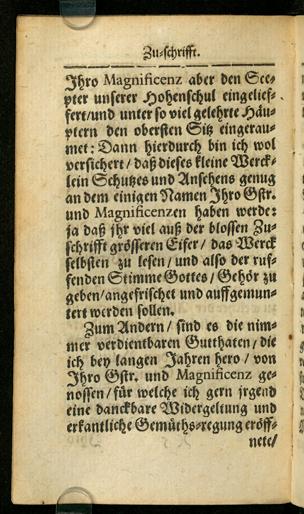 Zu-schrifft.
Ihro Magnificenz aber den Sce-
pter unserer Hohenschul eingelief-
fert/und unter so viel gelehrte Häu-
ptern den obersten Sitz eingerau-
met: Dann hierdurch bin ich wol
versichert / daß dieses kleine Werck-
lein Schutzes und Ansehens genug
an dem einigen Namen Ihro Gstr.
und Magnificenzen haben werde:
ja daß jhr viel auß der blossen Zu-
schrifft grösseren Eifer / das Werck
selbsten zu lesen / und also der ruf-
fenden Stimme Gottes / Gehör zu
geben/angefrischet und auffgemun-
tert werden sollen.
Zum Andern / sind es die nim-
mer verdientbaren Gutthaten / die
ich bey langen Jahren hero / von
Ihro Gstr. und Magnificenz ge-
nossen / für welche ich gern jrgend
eine danckbare Widergeltung und
erkantliche Gemüths-regung eröff-
nete/